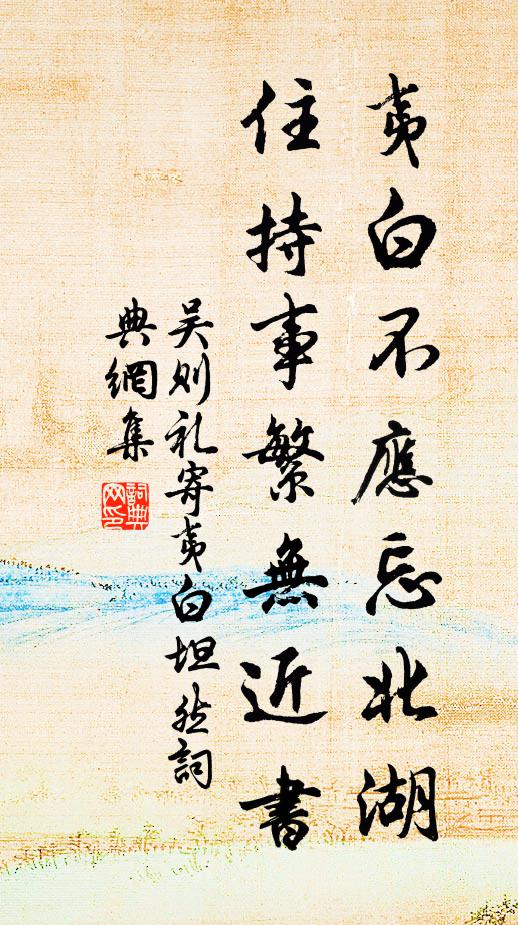 夷白不應忘北湖
住持事繁無近書
吴則礼寄夷白坦然詞
典網集
詞典网印